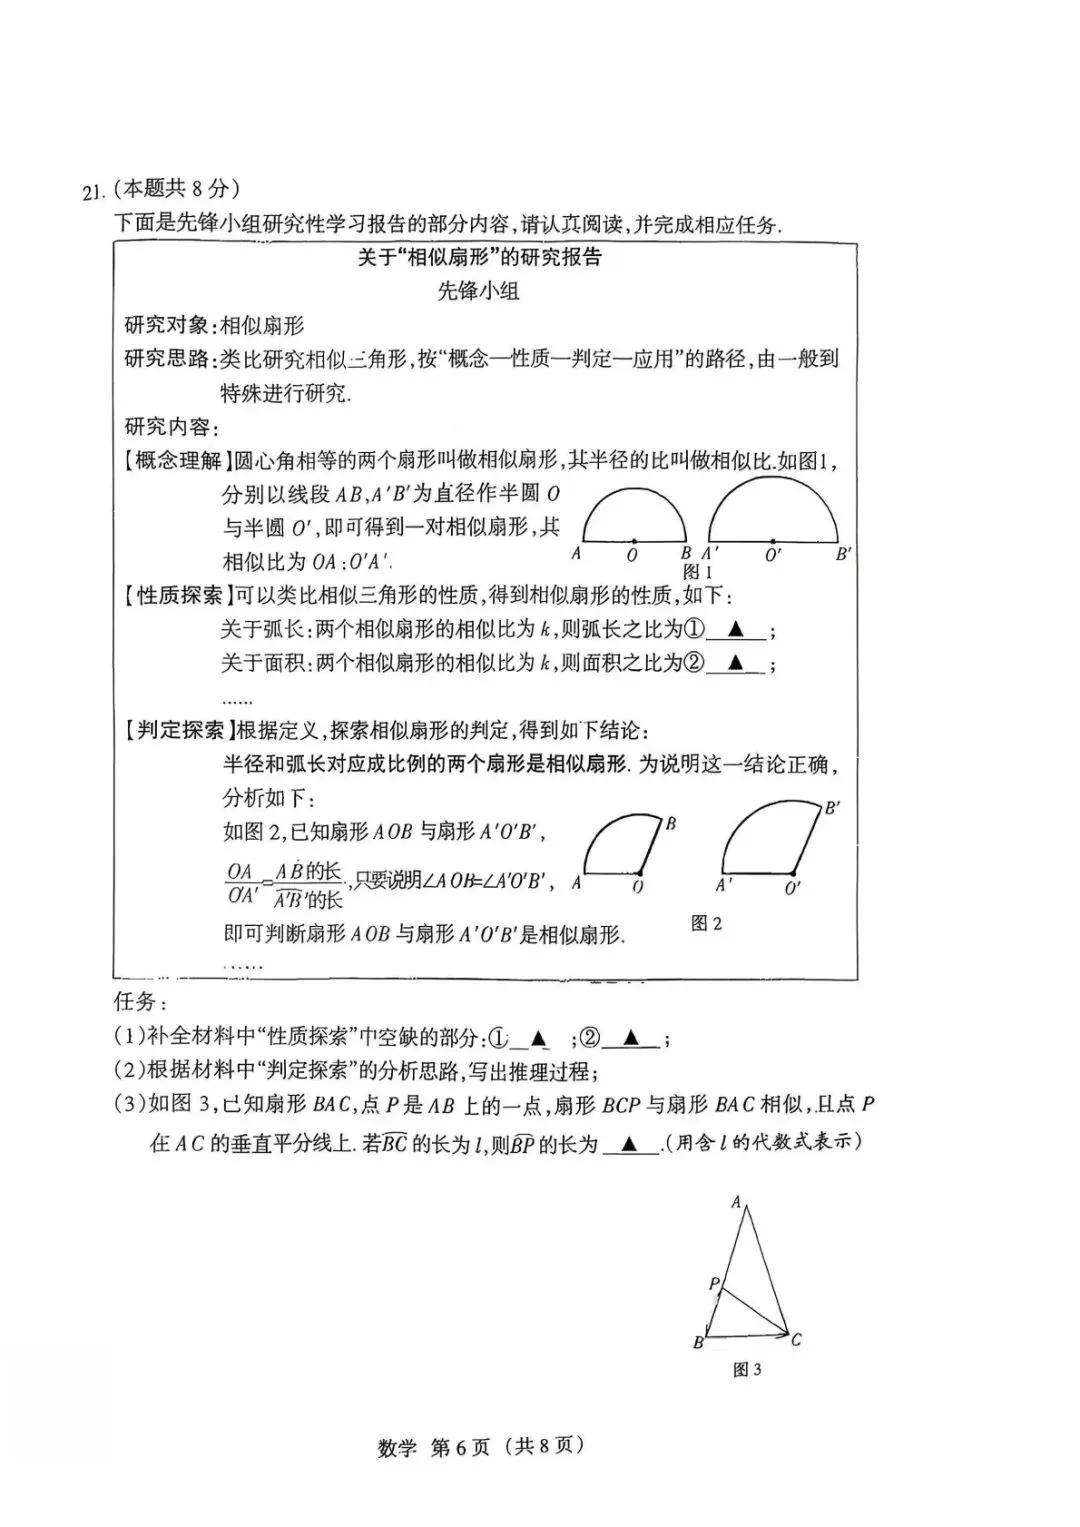 21.(本题共8分)
下面是先锋小组研究性学习报告的部分内容,请认真阅读,并完成相应任务.
关于“相似扇形”的研究报告
先锋小组
研究对象:相似扇形
研究思路:类比研究相似三角形,按“概念—性质—判定—应用”的路径,由一般到
特殊进行研究.
研究内容:
【概念理解】圆心角相等的两个扇形叫做相似扇形,其半径的比叫做相似比.如图1,
分别以线段AB,A′B′为直径作半圆O
与半圆O′,即可得到一对相似扇形,其
相似比为OA:O′A′.
A O B A′ O′ B′
图1
【性质探索】可以类比相似三角形的性质,得到相似扇形的性质,如下:
关于弧长:两个相似扇形的相似比为k,则弧长之比为①▲;
关于面积:两个相似扇形的相似比为k,则面积之比为②▲;
……
【判定探索】根据定义,探索相似扇形的判定,得到如下结论:
半径和弧长对应成比例的两个扇形是相似扇形. 为说明这一结论正确,
分析如下:
如图2,已知扇形AOB与扇形A′O′B′,
OA/O′A′=A͡B的长/A͡′B′的长,只要说明∠AOB=∠A′O′B′,
即可判断扇形AOB与扇形A′O′B′是相似扇形.
……
B B′
A O A′ O′
图2
任务:
(1)补全材料中“性质探索”中空缺的部分:①▲;②▲;
(2)根据材料中“判定探索”的分析思路,写出推理过程;
(3)如图3,已知扇形BAC,点P是AB上的一点,扇形BCP与扇形BAC相似,且点P
在AC的垂直平分线上.若B͡C的长为l,则B͡P的长为▲.(用含l的代数式表示)
A
P
B C
图3
数学 第6页(共8页)